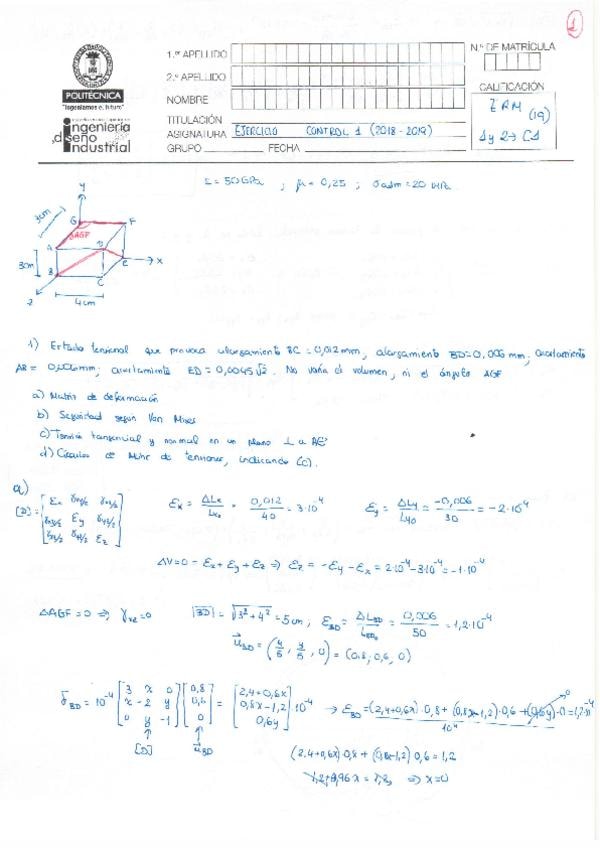 1
POLITÉCNICA
"Ingeniamos el futuro"
ingeniería
diseño
industrial
1.er APELLIDO
2.º APELLIDO
NOMBRE
TITULACIÓN
ASIGNATURA EJERCICIO CONTROL 1 (2018-2019)
GRUPO FECHA
N.º DE MATRÍCULA
CALIFICACIÓN
ERM (19)
E = 50GPa ; μ = 0,25 ; σadm = 20 MPa
y
3cm
G
F
ΔAGF
A
D
E
x
3cm
B
C
z
4cm
1) Estado tensional que provoca alargamiento BC = 0,012mm, alargamiento BD = 0,006mm; acortamiento
AB = 0,006mm; acortamiento ED = 0,0045√2. No varía el volumen, ni el ángulo AGF
a) Matriz de deformación
b) Seguridad según Von Mises
c) Tensión tangencial y normal en un plano ⊥ a AE
d) Círculos de Mohr de tensiones, indicando (c).
a)
[D] = [εx γxy/2 γxz/2
γxy/2 εy γyz/2
γxz/2 γyz/2 εz]
εx = ΔLx/Lx0 = 0,012/40 = 3·10⁻⁴
εy = ΔLy/Ly0 = -0,006/30 = -2·10⁻⁴
ΔV=0 = εx + εy + εz ⇒ εz = -εy - εx = 2·10⁻⁴ - 3·10⁻⁴ = -1·10⁻⁴
ΔAGF = 0 ⇒ γxz = 0
|BD| = √3² + 4² = 5cm ; εBD = ΔLBD/LBD0 = 0,006/50 = 1,2·10⁻⁴
uBD = (4/5, 3/5, 0) = (0,8; 0,6, 0)
δBD = 10⁻⁴ [3 x 0
x -2 y
0 y -1] [0,8
0,6
0] = [2,4+0,6x
0,8x-1,2
0,6y] ·10⁻⁴ → εBD = (2,4+0,6x)·0,8 + (0,8x-1,2)·0,6 + (0,6y)·0 = 1,2·10⁻⁴
0
10⁴
[D]
uBD
(2,4+0,6x)·0,8 + (0,8x-1,2)0,6 = 1,2
1,2+0,96x = 1,2 ⇒ x=0